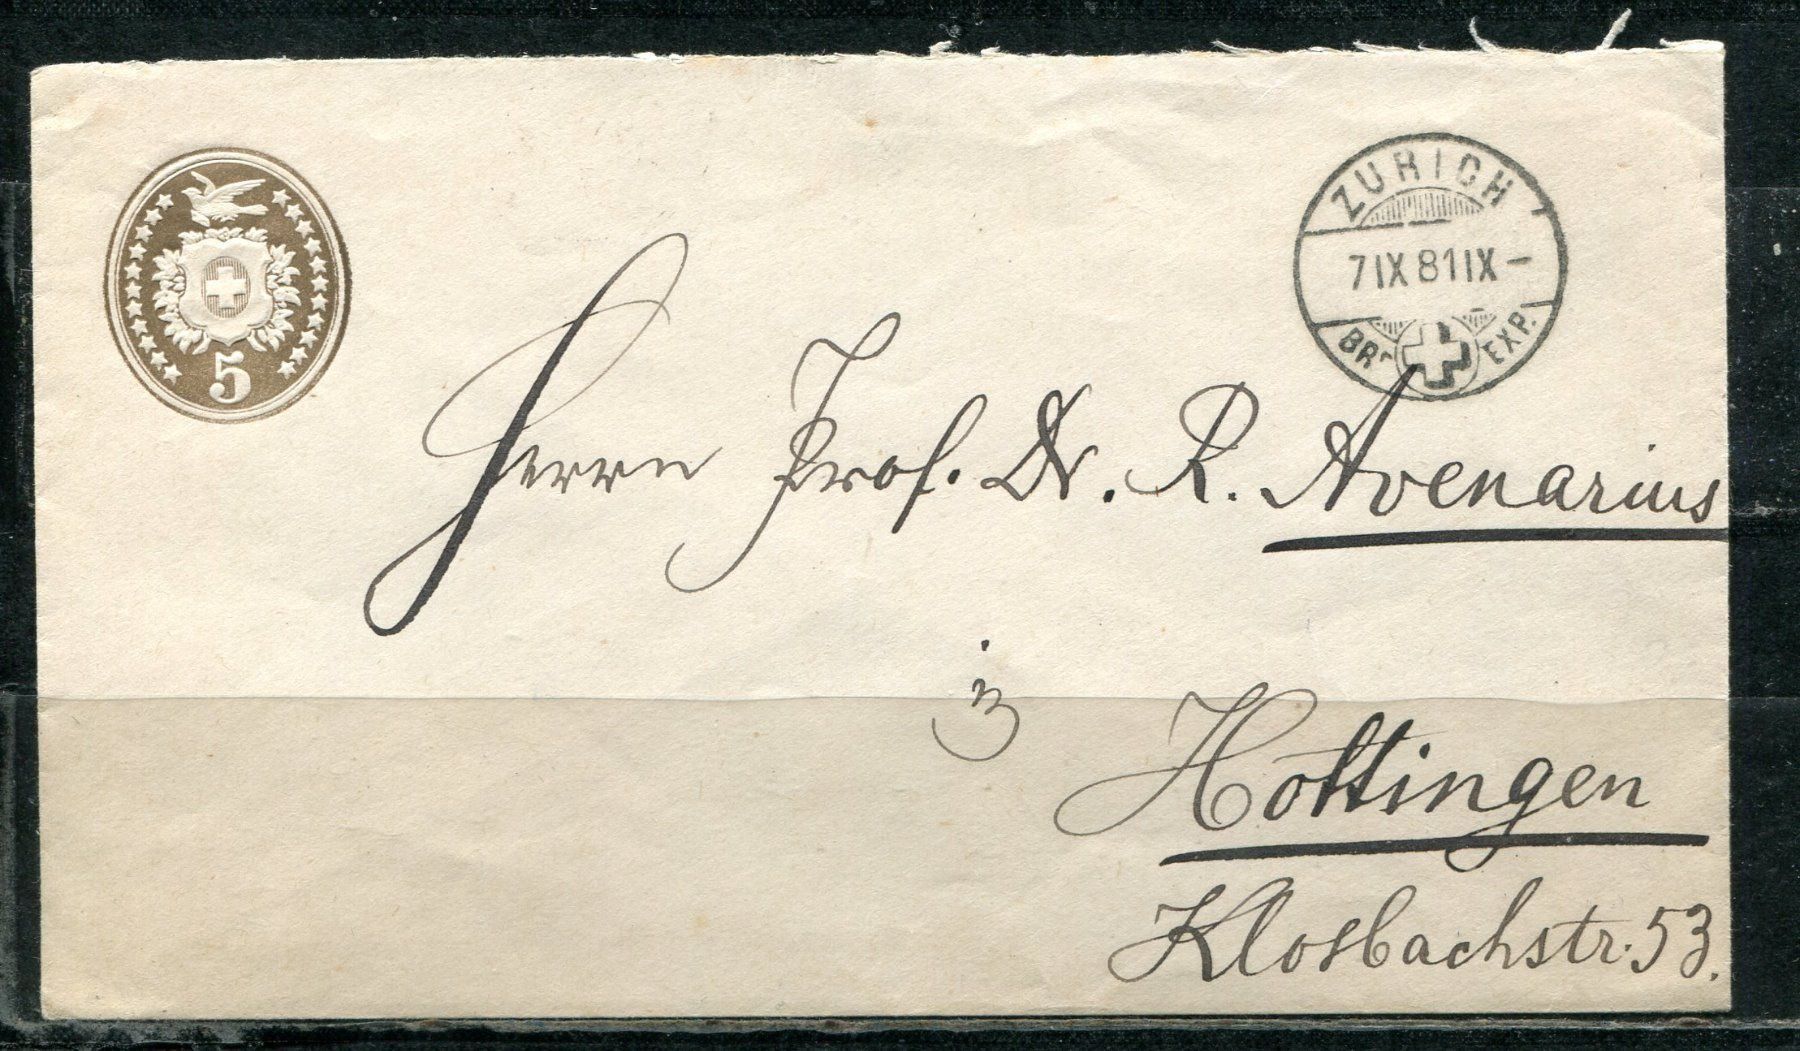 5
ZÜRICH
7 IX 81 IX –
BRF EXP.
Herrn Prof. Dr. R. Avenarius
in
Hottingen
Klosbachstr. 53.